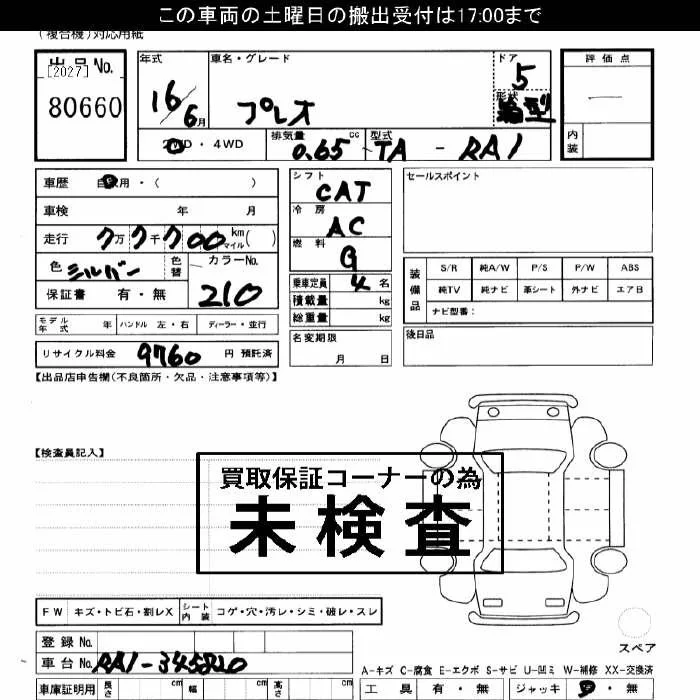 この車両の土曜日の搬出受付は17:00まで
(複合機)対応用紙
出品No.
[2027]
80660
年式
16 6月
車名・グレード
プレオ
ドア
5
形状
箱型
評価点
内装
2WD・4WD
排気量 cc
0.65
型式
TA - RA1
車歴 自家用・( )
車検 年 月
走行 7万7千700 km マイル( )
色 シルバー
色替
カラーNo.
210
保証書 有・無
モデル年式 年
ハンドル 左・右
ディーラー・並行
リサイクル料金 9760 円 預託済
シフト
CAT
冷房
AC
燃料
G
乗車定員 4 名
積載量 kg
総重量 kg
名変期限
月 日
セールスポイント
装備品
S/R 純A/W P/S P/W ABS
純TV 純ナビ 革シート 外ナビ エアB
ナビ型番:
後日品
【出品店申告欄(不良箇所・欠品・注意事項等)】
【検査員記入】
買取保証コーナーの為
未検査
FW キズ・トビ石・割レX
シート内装 コゲ・穴・汚レ・シミ・破レ・スレ
登録No.
車台No. RA1-345820
車庫証明用 長さ cm 幅 cm 高さ cm
スペア
A-キズ C-腐食 E-エクボ S-サビ U-凹ミ W-補修 XX-交換済
工具 有・無 ジャッキ 有・無